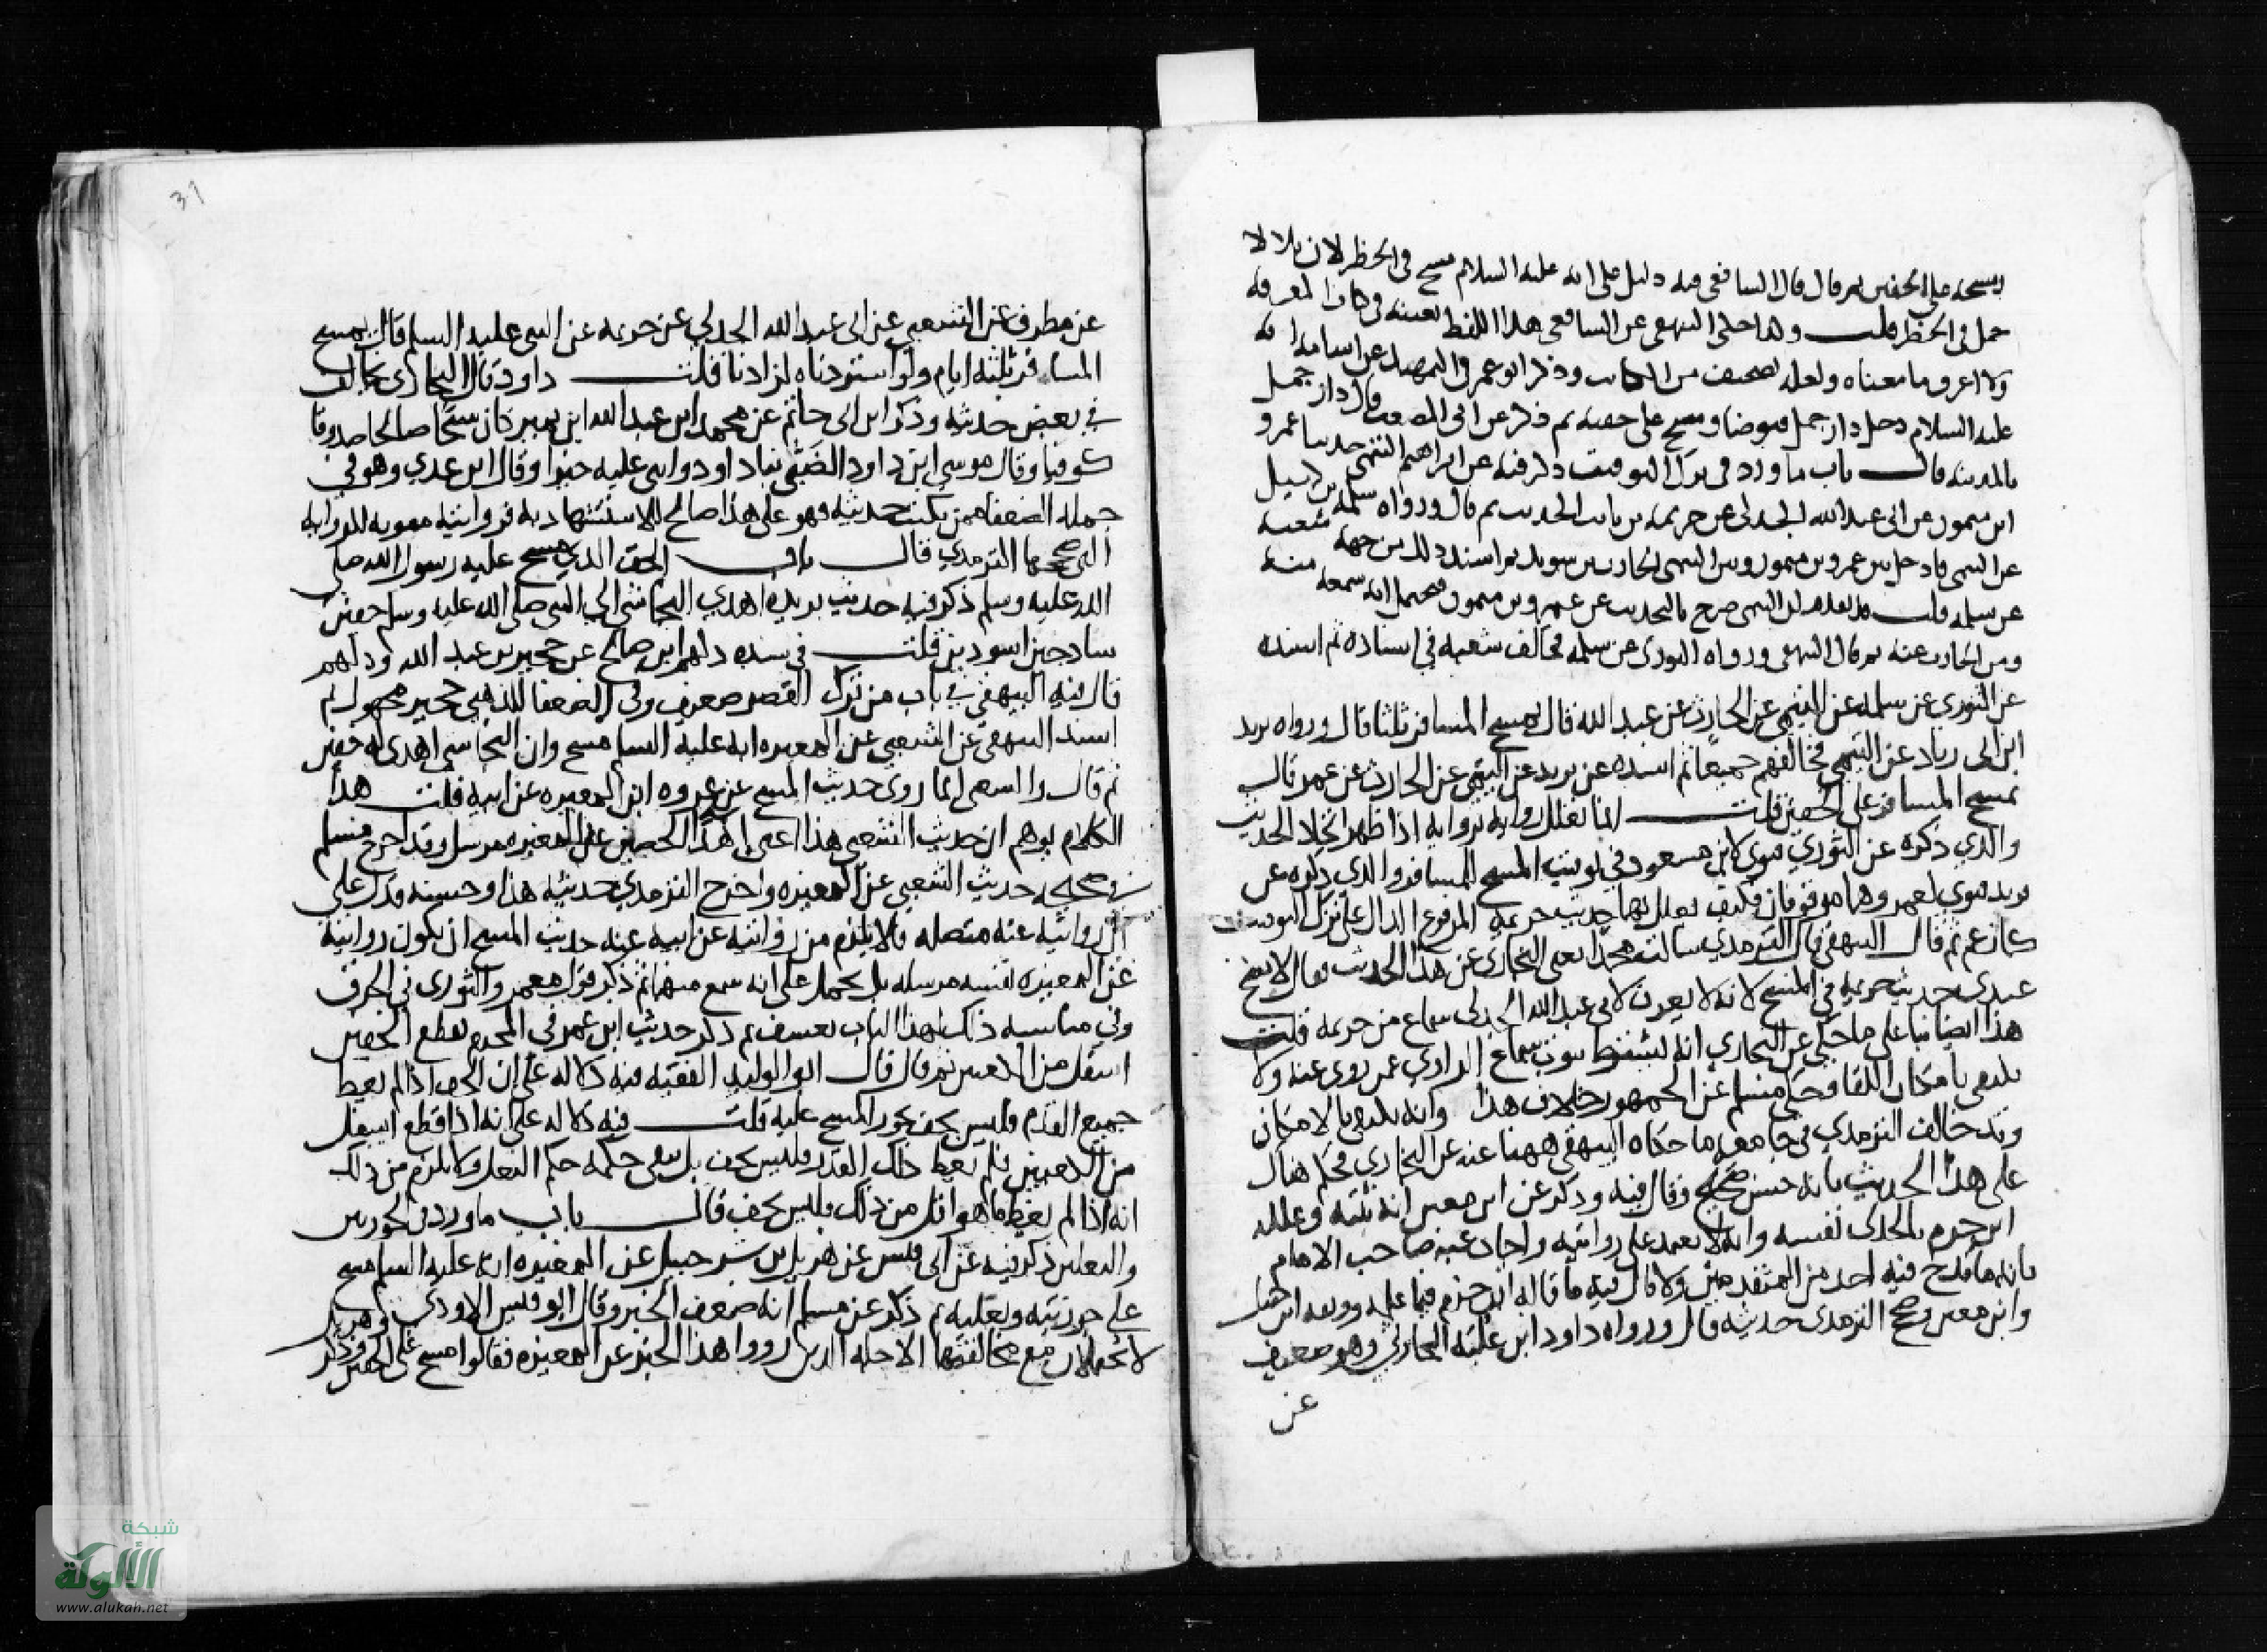 ومسحه على الخفين ثم قال قال الشافعي فيه دليل على انه عليه السلام مسح في الحضر لان بلالا
حمل في الحضر قلت وكذا حكى البيهقي عن الشافعي هذا اللفظ بعينه في كتاب المعرفة
ولا اعرف ما معناه ولعله تصحيف من الكاتب وذكر ابو عمر في التمهيد عن اسامة انه
عليه السلام دخل دار جمل فتوضا ومسح على خفيه ثم ذكر عن ابي المصعب قال دار جمل
بالمدينة قال باب ما ورد في ترك التوقيت ذكر فيه عن ابراهيم التيمي حدثنا عمرو
ابن ميمون عن ابي عبد الله الجدلي عن خزيمة بن ثابت الحديث ثم قال ورواه سلمة بن كهيل
عن التيمي فادخل بين عمرو بن ميمون وبين التيمي الحارث بن سويد ثم اسند ذلك من جهة شعبة
عن سلمة قلت قد تقدم ان التيمي صرح بالتحديث عن عمرو بن ميمون فيحتمل انه سمعه منه
ومن الحارث عنه ثم قال البيهقي ورواه الثوري عن سلمة فخالف شعبة في اسناده ثم اسنده
عن الثوري عن سلمة عن التيمي عن الحارث عن عبد الله قال يمسح المسافر ثلثا قال ورواه يزيد
ابن ابي زياد عن التيمي فخالفهم جميعا ثم اسنده عن يزيد عن التيمي عن الحارث عن عمر قال
يمسح المسافر على الخفين قلت انما تعلل رواية برواية اذا ظهر اتحاد الحديث
والذي ذكره عن الثوري فتوى لابن مسعود في توقيت المسح للمسافر والذي ذكره عن
يزيد فتوى لعمر وهما موقوفان فكيف يعلل بهما حديث خزيمة المرفوع الدال على ترك التوقيت
كما زعم ثم قال البيهقي قال الترمذي سالت محمدا يعني البخاري عن هذا الحديث فقال لا يصح
عندي حديث خزيمة في المسح لانه لا يعرف لابي عبد الله الجدلي سماع من خزيمة قلت
هذا ايضا بنا على ما حكي عن البخاري انه يشترط ثبوت سماع الراوي عمن روى عنه ولا
يكتفي بامكان اللقا وحكى مسلم عن الجمهور خلاف هذا وانه يكتفى بالامكان
وقد خالف الترمذي في جامعه ما حكاه البيهقي ههنا عنه عن البخاري فحكم هناك
على هذا الحديث بانه حسن صحيح وقال فيه وذكر عن ابن معين انه ثبته وعلله
ابن حزم بالجدلي نفسه وانه لا يعتمد على روايته واجاب عنه صاحب الامام
بانه ما قدح فيه احد من المتقدمين ولا قال فيه ما قاله ابن حزم فيما علمه ووثقه ابن حنبل
وابن معين وصحح الترمذي حديثه قال ورواه داود ابن علبة الحارثي وهو ضعيف
عن
31
عن مطرف عن الشعبي عن ابي عبد الله الجدلي عن خزيمة عن النبي عليه السلم قال يمسح
المسافر ثلثة ايام ولو استزدناه لزادنا قلت داود قال البخاري يخالف
في بعض حديثه وذكر ابن ابي حاتم عن محمد ابن عبد الله ابن نمير كان شيخا صالحا صدوقا
كوفيا وقال موسى ابن داود الضبي ثنا داود واثنى عليه خيرا وقال ابن عدي وهو في
جملة الضعفاء ممن يكتب حديثه فهو على هذا صالح للاستشهاد به فروايته مقوية للرواية
التي صححها الترمذي قال باب الخف الذي مسح عليه رسول الله صلى
الله عليه وسلم ذكر فيه حديث بريدة اهدى النجاشي الى النبي صلى الله عليه وسلم خفين
ساذجين اسودين قلت في سنده دلهم ابن صالح عن حجير بن عبد الله ودلهم
قال فيه البيهقي في باب من ترك القصر ضعيف وفي الضعفا للذهبي حجير مجهول ثم
اسند البيهقي عن الشعبي عن المغيرة انه عليه السلم مسح وان النجاشي اهدى له خفين
ثم قال والشعبي انما روى حديث المسح عن عروة ابن المغيرة عن ابيه قلت هذا
الكلام يوهم ان حديث الشعبي هذا اعني اهدا الخفين عن المغيرة مرسل وقد اخرج مسلم
في صحيحه حديث الشعبي عن المغيرة واخرج الترمذي حديثه هذا وحسنه فدل على
ان روايته عنه متصله ولا يلزم من روايته عن ابيه عنه حديث المسح ان يكون روايته
عن المغيرة نفسه مرسلة بل يحمل على انه سمع منهما ثم ذكر قول معمر والثوري في الخرق
وفي مناسبة ذلك لهذا الباب تعسف ثم ذكر حديث ابن عمر في المحرم يقطع الخفين
اسفل من الكعبين ثم قال قال ابو الوليد الفقيه فيه دلالة على ان الخف اذا لم يغط
جميع القدم فليس بخف يجوز المسح عليه قلت فيه دلالة على انه اذا قطع اسفل
من الكعبين فلم يغط ذلك القدر فليس بخف بل يبقى حكمه حكم النعل ولا يلزم من ذلك
انه اذا لم يغط ما هو اقل من ذلك فليس بخف قال باب ما ورد في الجوربين
والنعلين ذكر فيه عن ابي قيس عن هزيل بن شرحبيل عن المغيرة انه عليه السلم مسح
على جوربيه ونعليه ثم ذكر عن مسلم انه ضعف الخبر وقال ابو قيس الاودي وهزيل
لا يحتملان مع مخالفتهما الاجلة الذين رووا هذا الخبر عن المغيرة فقالوا مسح على الخفين وذكر
شبكة
الألوكة
www.alukah.net